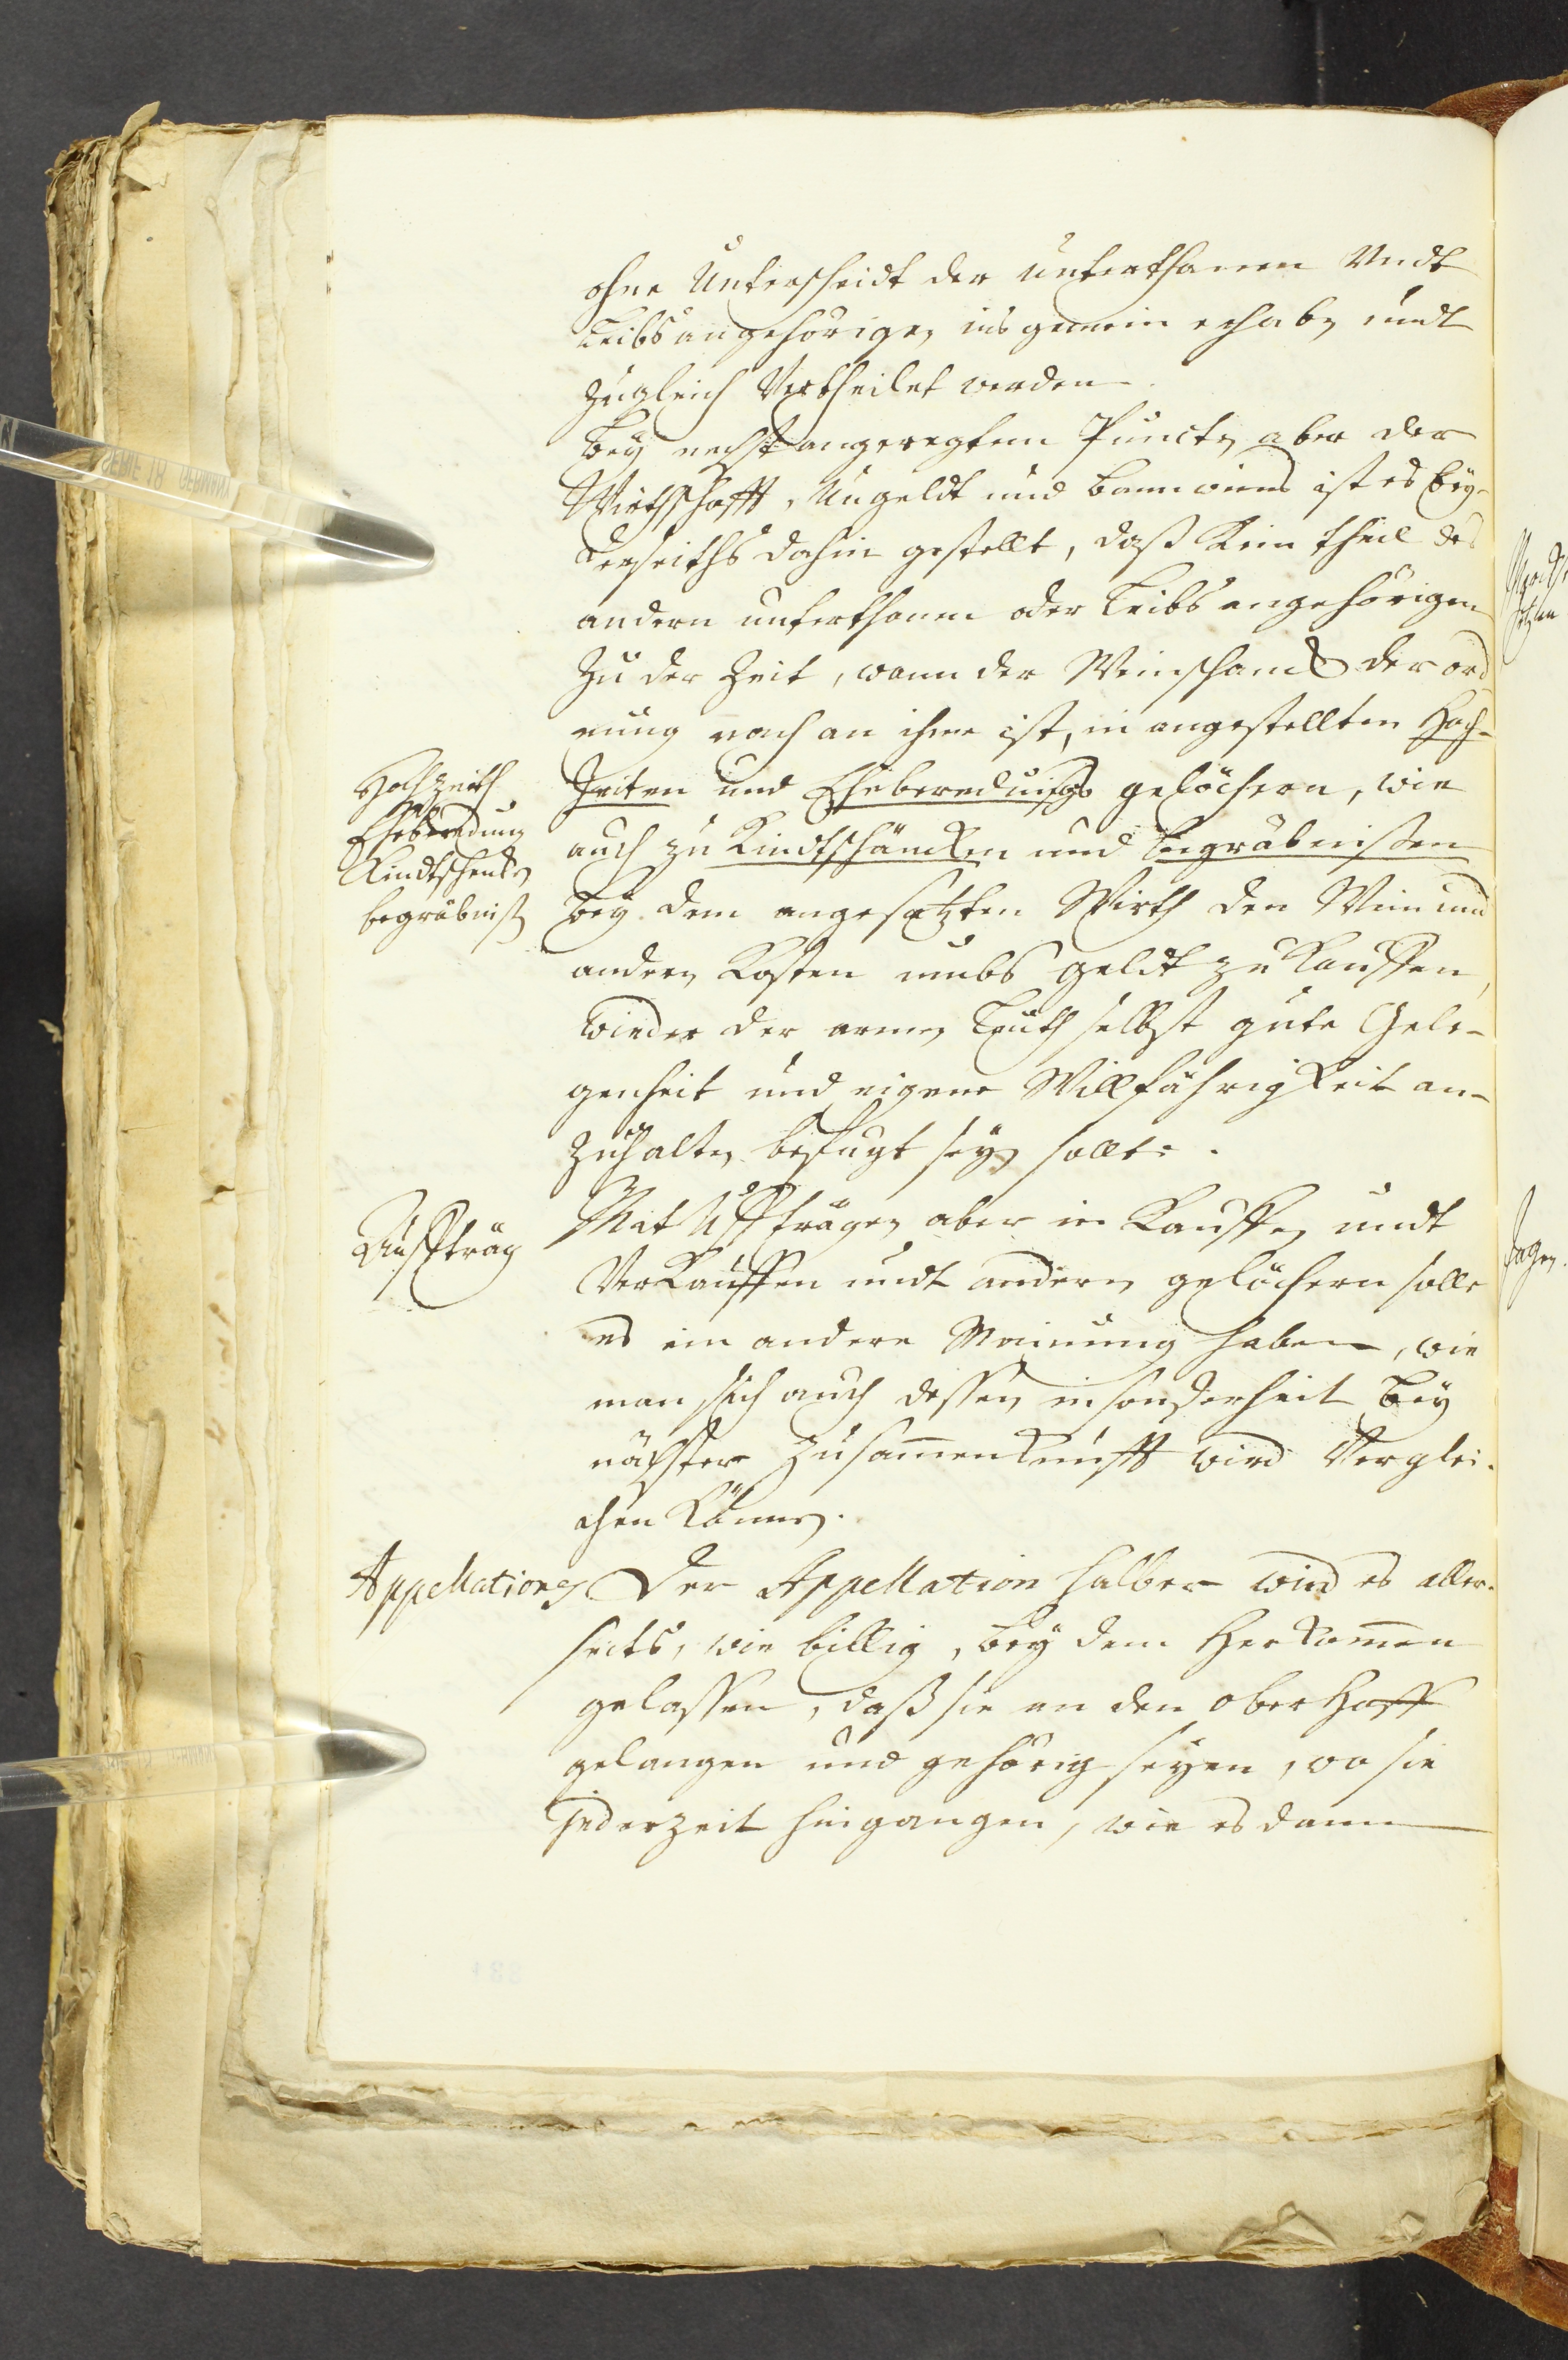 ohne Unterscheidt der unterthanen Undt
Leibsangehörigen ins gemein erhaben undt
zugleich Vertheilet werden.
Bey nechst angeregtem Puncten aber der
Wirthschafft, Umgeldt und bannweins ist es bey-
derseiths dahin gestellt, daß kein theil des
andern unterthanen oder Leibsangehörigen
zu der Zeit, wann der Weinschanck der ord
nung nach an ihme ist, in angestellten Hoch-
Hochzeith
Eheberedung
Kindtschencken
begräbniß
zeiten und Eheberedungs gelächern, wie
auch zu Kindtschäncken und Begräbnißen
bey dem angesetzten Wirth den Wein und
andern Kosten umbs geldt zu kauffen,
wieder der armen Leuth selbst gute Gele-
genheit und eigene Willfährigkeit an-
zuhalten befugt seyn solle.
Auffträg
Mit Uffträgen aber in Kauffen undt
Verkauffen undt andern gelächern solle
es ein andere Meinung haben, wie
man sich auch dessen insonderheit bey
nächster Zusam̄enkunfft wird Verglei-
chen können.
Appellationes
Der Appellation halber wird es aller-
seits, wie billig, bey dem Herkom̄en
gelassen, daß sie an den oberhoff
gelangen und gehörig seyen, wo sie
jederzeit hingangen, wie es dann